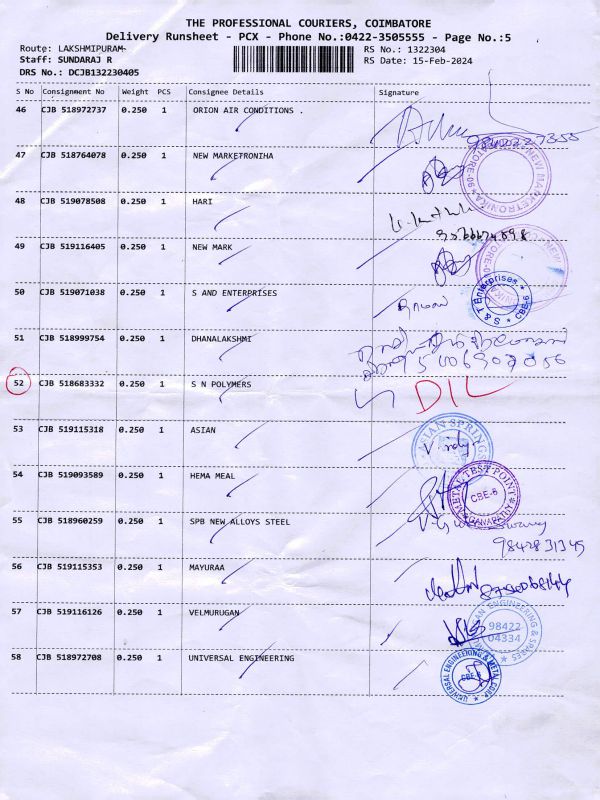 THE PROFESSIONAL COURIERS, COIMBATORE
Delivery Runsheet - PCX - Phone No.:0422-3505555 - Page No.:5
Route: LAKSHMIPURAM-
RS No.: 1322304
Staff: SUNDARAJ R
RS Date: 15-Feb-2024
DRS No.: DCJB132230405
S No Consignment No Weight PCS Consignee Details Signature
46 CJB 518972737 0.250 1 ORION AIR CONDITIONS .
47 CJB 518764078 0.250 1 NEW MARKETRONIHA
NEW MARKETRONIKA
48 CJB 519078508 0.250 1 HARI
49 CJB 519116405 0.250 1 NEW MARK
50 CJB 519071038 0.250 1 S AND ENTERPRISES
S & T Enterprises CBE-6
51 CJB 518999754 0.250 1 DHANALAKSHMI
52 CJB 518683332 0.250 1 S N POLYMERS
DIL
53 CJB 519115318 0.250 1 ASIAN
ASIAN SPRINGS
54 CJB 519093589 0.250 1 HEMA MEAL
METAL TEST POINT CBE-6 GANAPATHY
55 CJB 518960259 0.250 1 SPB NEW ALLOYS STEEL
9842831345
56 CJB 519115353 0.250 1 MAYURAA
57 CJB 519116126 0.250 1 VELMURUGAN
ENGINEERING & SPARES
98422
04334
58 CJB 518972708 0.250 1 UNIVERSAL ENGINEERING
UNIVERSAL ENGINEERING & METAL CORP CBE-6